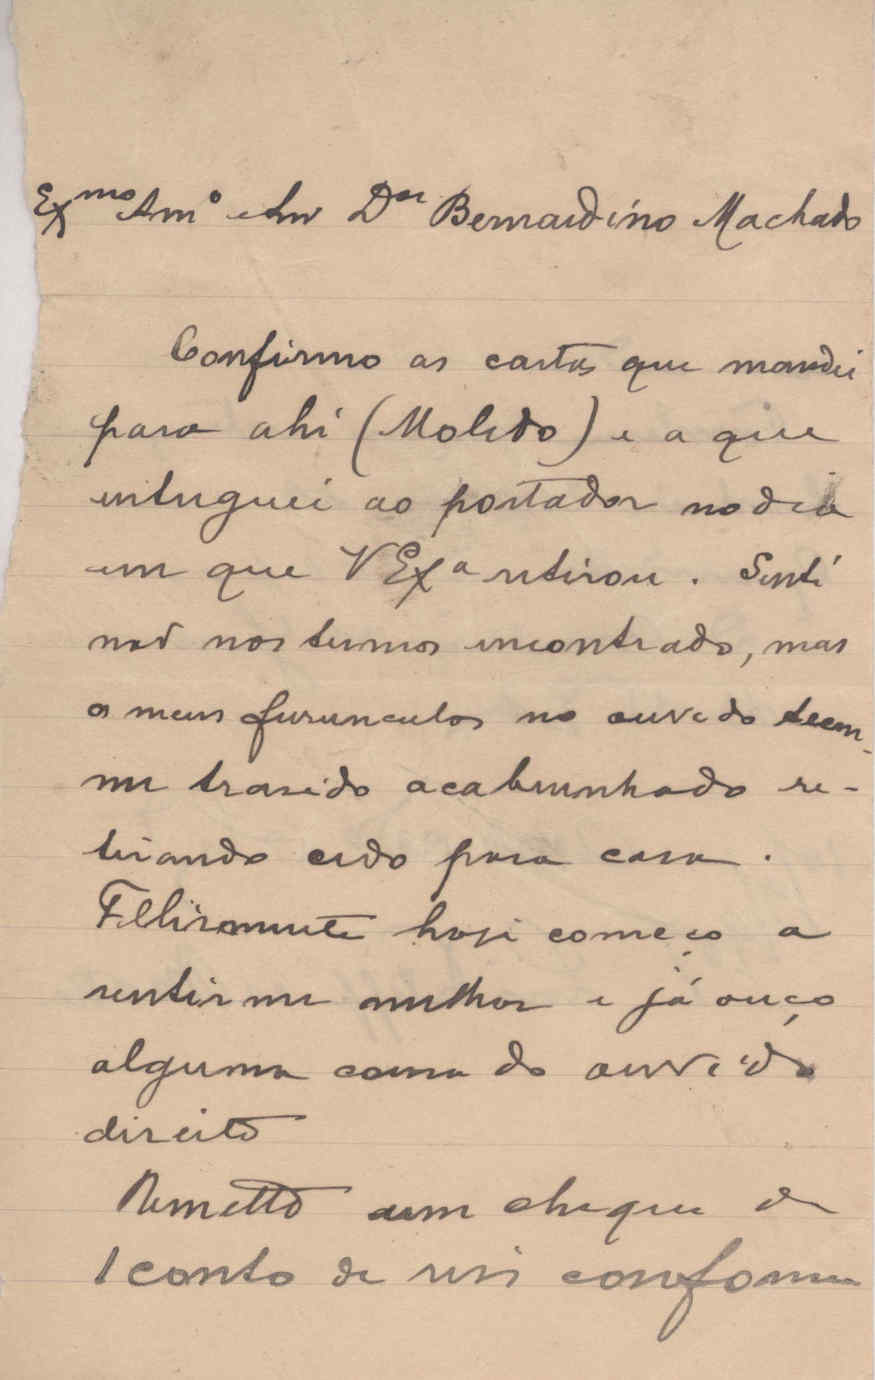 Ex.mo Am.o e Snr Dor Bernardino Machado
Confirmo as cartas que mandei
para ahi (Moledo) e a que
entreguei ao portador no dia
em que V Ex.a retirou. Senti
não nos termos encontrado, mas
os meus furunculos no ouvido teem-
me trazido acabrunhado re-
tirando cedo para casa.
Felismente hoje começo a
sentir me melhor e já ouço
alguma cousa do ouvido
direito
Remetto um cheque de
1 conto de reis conforme